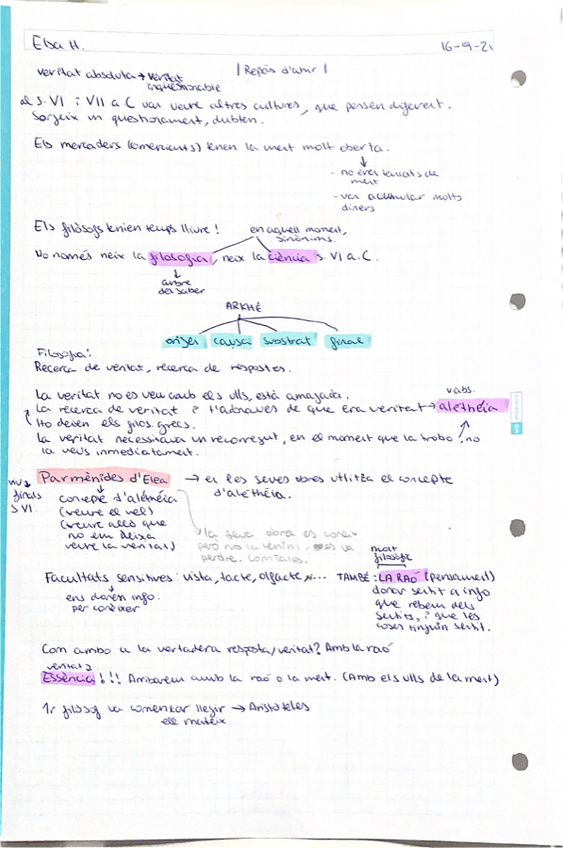 Elsa H.
16-9-21
| Repàs d'ahir |
veritat absoluta → veritat
inqüestionable
al s. VI i VII a.C van veure altres cultures, que pensen diferent.
Sorgeix un qüestionament, dubten.
Els mercaders (comerciants) tenen la ment molt oberta.
- no eren tancats de
ment
- van acumular molts
diners
Els filòsofs tenien temps lliure!
en aquell moment,
sinònims.
No només neix la filosofia, neix la ciència s. VI a.C.
amor
del saber
ARKHÉ
origen causa substrat final
Filosofia:
Recerca de veritat, recerca de respostes.
La veritat no es veu amb els ulls, està amagada.
v.abs.
La recerca de veritat i t'adonaves de que era veritat → alethéia
Ho deien els filos. grecs.
La veritat necessitava un recorregut, en el moment que la trobo, no
la veus immediatament.
finals
s VI
Parmènides d'Elea → en les seves obres utilitza el concepte
d'alethéia.
concepte d'alethéia
(veure el vel)
(veure allò que
no em deixa
veure la veritat)
la seva obra es coneix
però no la tenim, es va
perdre.
molt
filosòfic
Facultats sensitives: vista, tacte, olfacte, ... TAMBÉ: LA RAÓ (pensament)
ens donen info.
per conèixer
donar sentit a info
que rebem dels
sentits, i que les
coses tinguin sentit.
Com arribo a la vertadera resposta/veritat? Amb la raó
veritat
Essència!!! Arribarem amb la raó o la ment. (Amb els ulls de la ment)
1r filòsof va començar llegir → Aristòteles
ell mateix